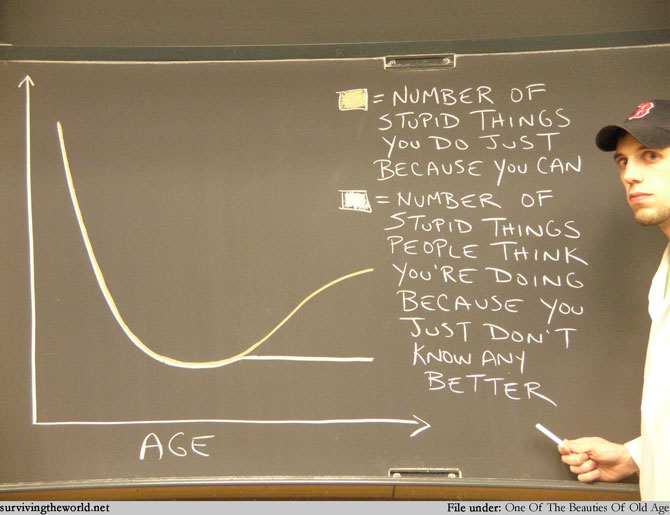 = NUMBER OF
STUPID THINGS
YOU DO JUST
BECAUSE YOU CAN
= NUMBER OF
STUPID THINGS
PEOPLE THINK
YOU'RE DOING
BECAUSE YOU
JUST DON'T
KNOW ANY
BETTER
AGE
B
survivingtheworld.net
File under: One Of The Beauties Of Old Age